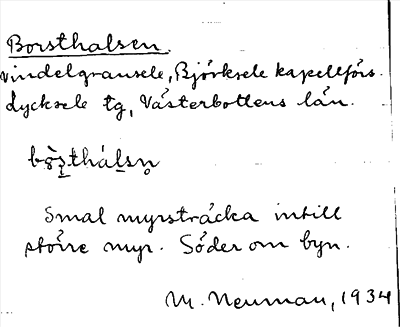 Borsthalsen.
Vindelgransele, Björksele kapellförs.
Lycksele tg, Västerbottens län.
Smal myrsträcka intill
större myr. Söder om byn.
M. Neuman, 1934